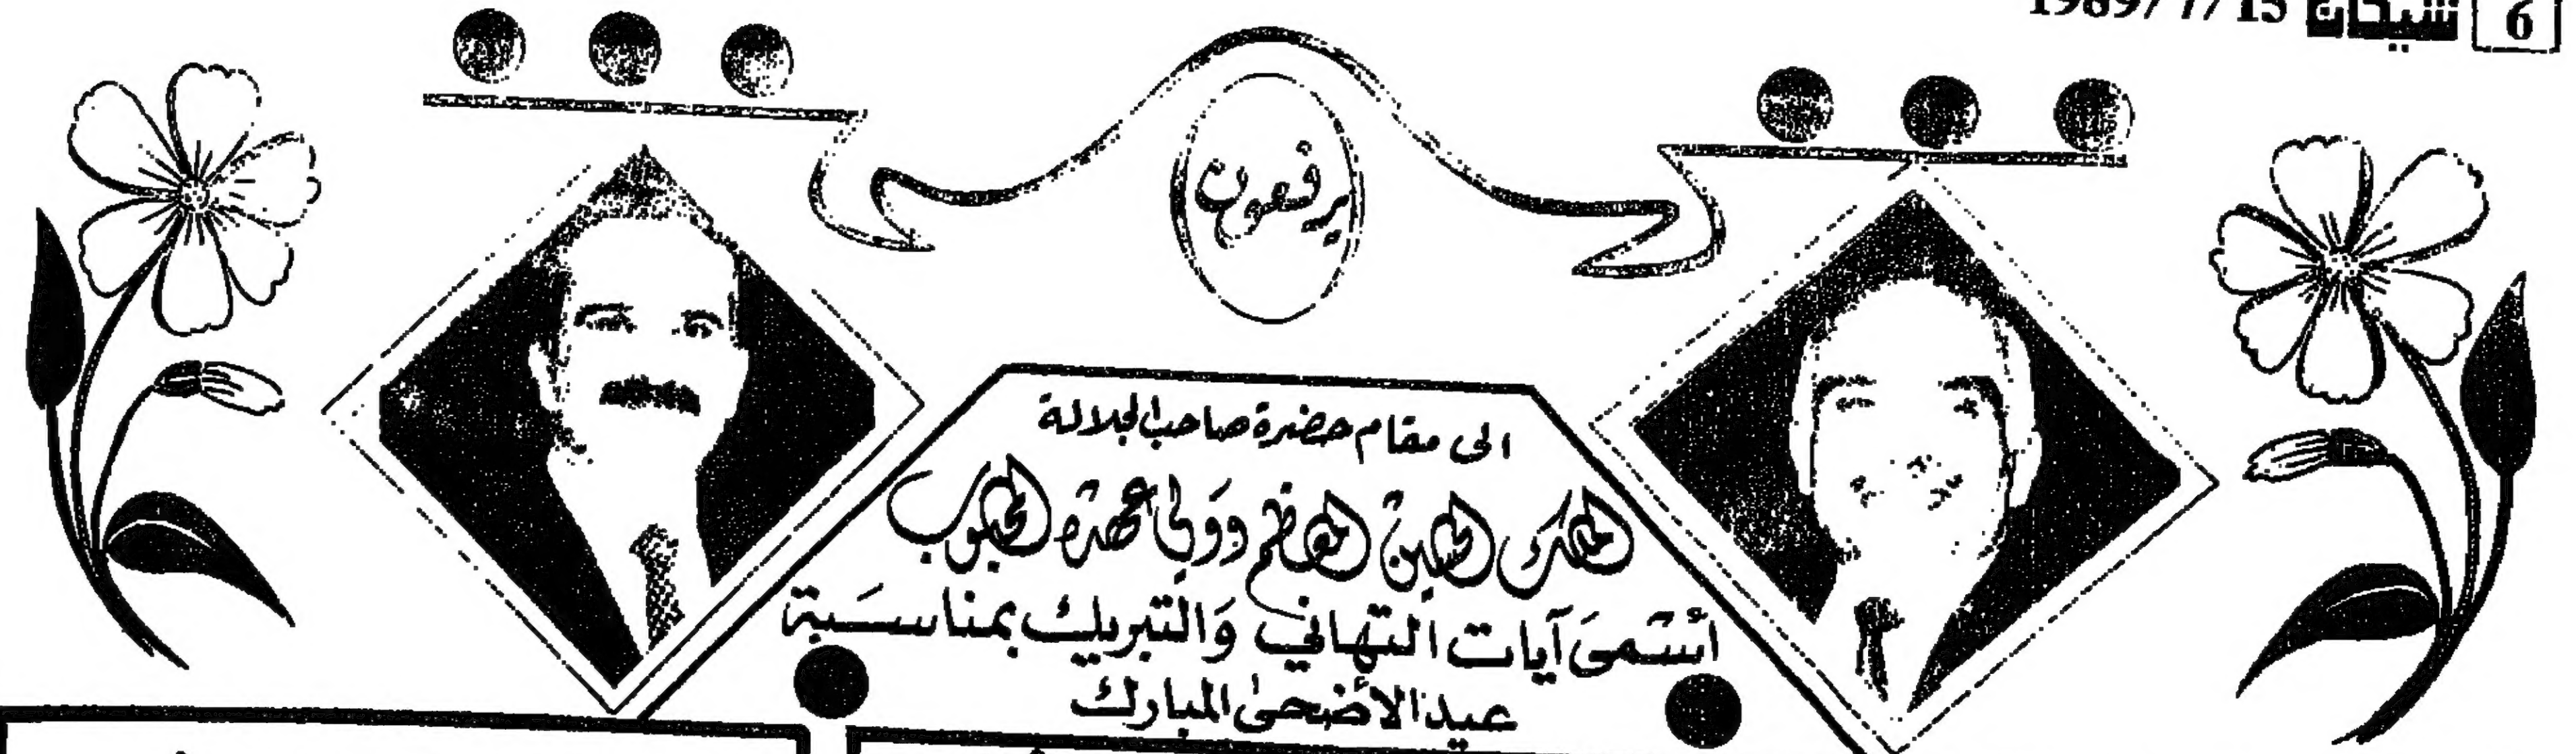 6 شيحان 1989/7/15
يرفعون
الى مقام حضرة صاحب الجلالة
الملك الحسين المعظم وولي عهده المحبوب
أسمى آيات التهاني والتبريك بمناسبة
عيد الاضحى المبارك